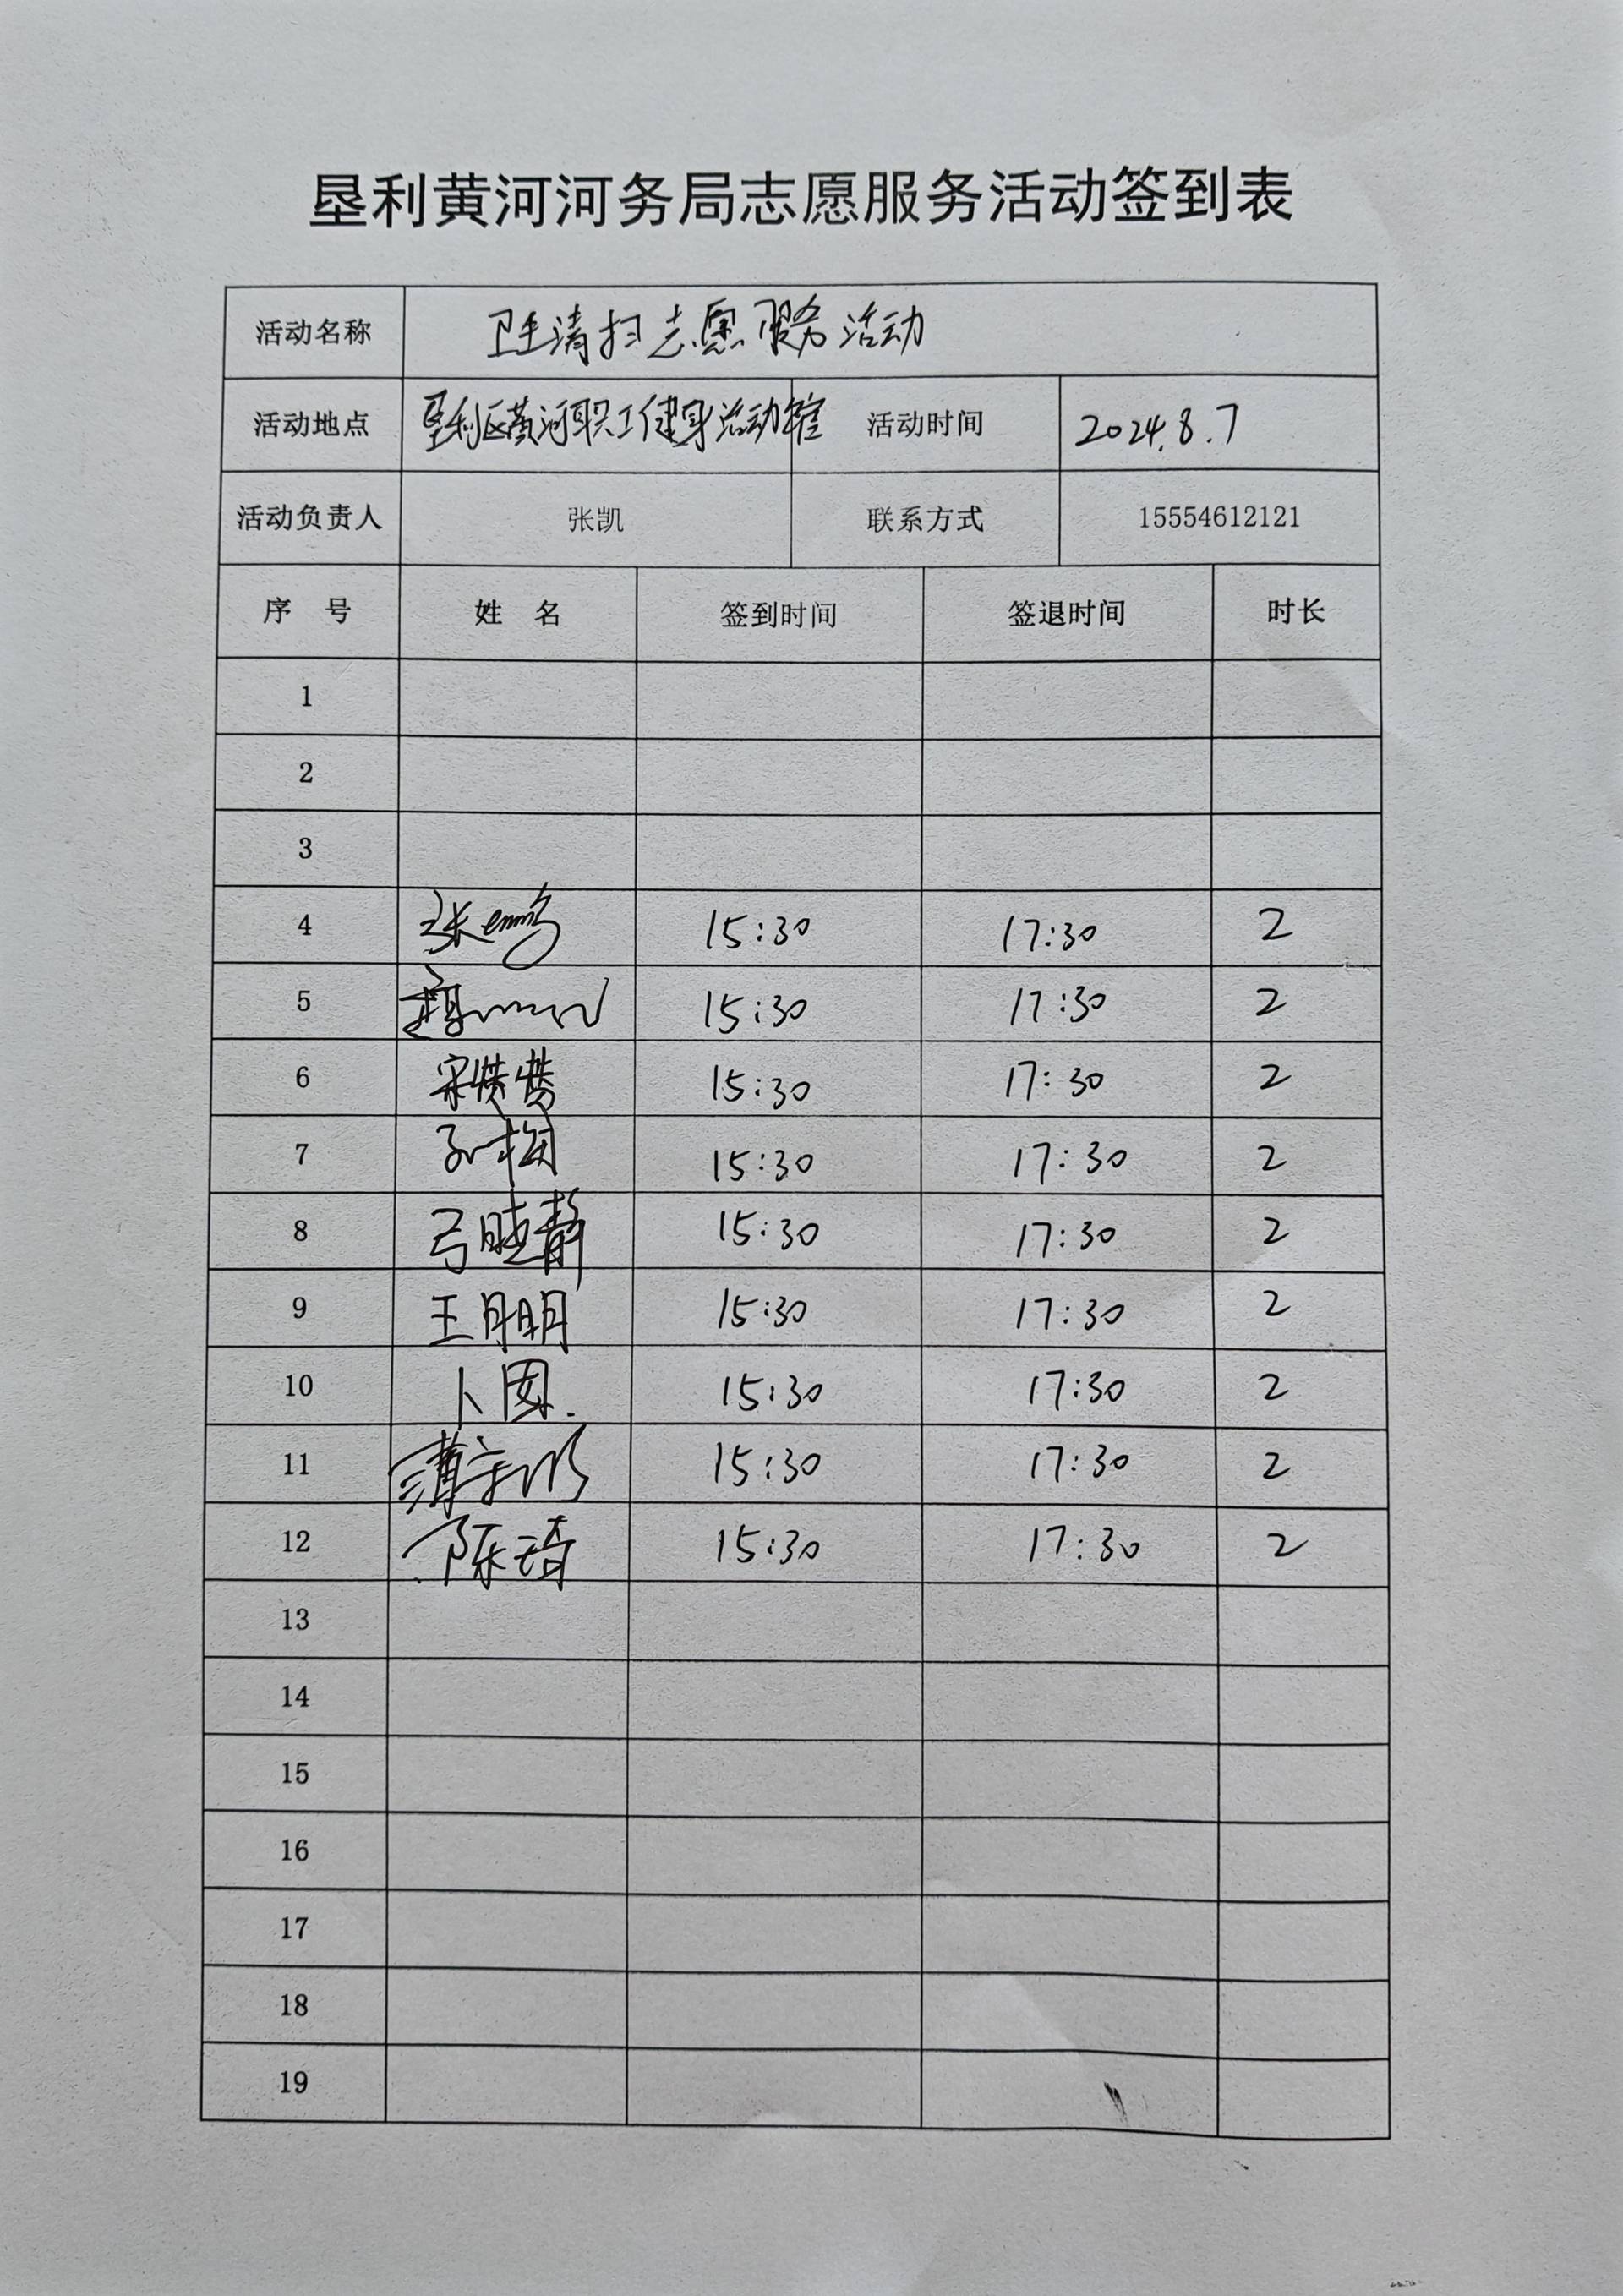 垦利黄河河务局志愿服务活动签到表
活动名称 卫生清扫志愿服务活动
活动地点 垦利区黄河职工健身活动 活动时间 2024.8.7
活动负责人 张凯 联系方式 15554612121
序 号 姓 名 签到时间 签退时间 时长
1
2
3
4 张 15:30 17:30 2
5 15:30 17:30 2
6 宋 15:30 17:30 2
7 孙梅 15:30 17:30 2
8 弓晓静 15:30 17:30 2
9 王月明 15:30 17:30 2
10 卜囡. 15:30 17:30 2
11 薄 15:30 17:30 2
12 陈琦 15:30 17:30 2
13
14
15
16
17
18
19